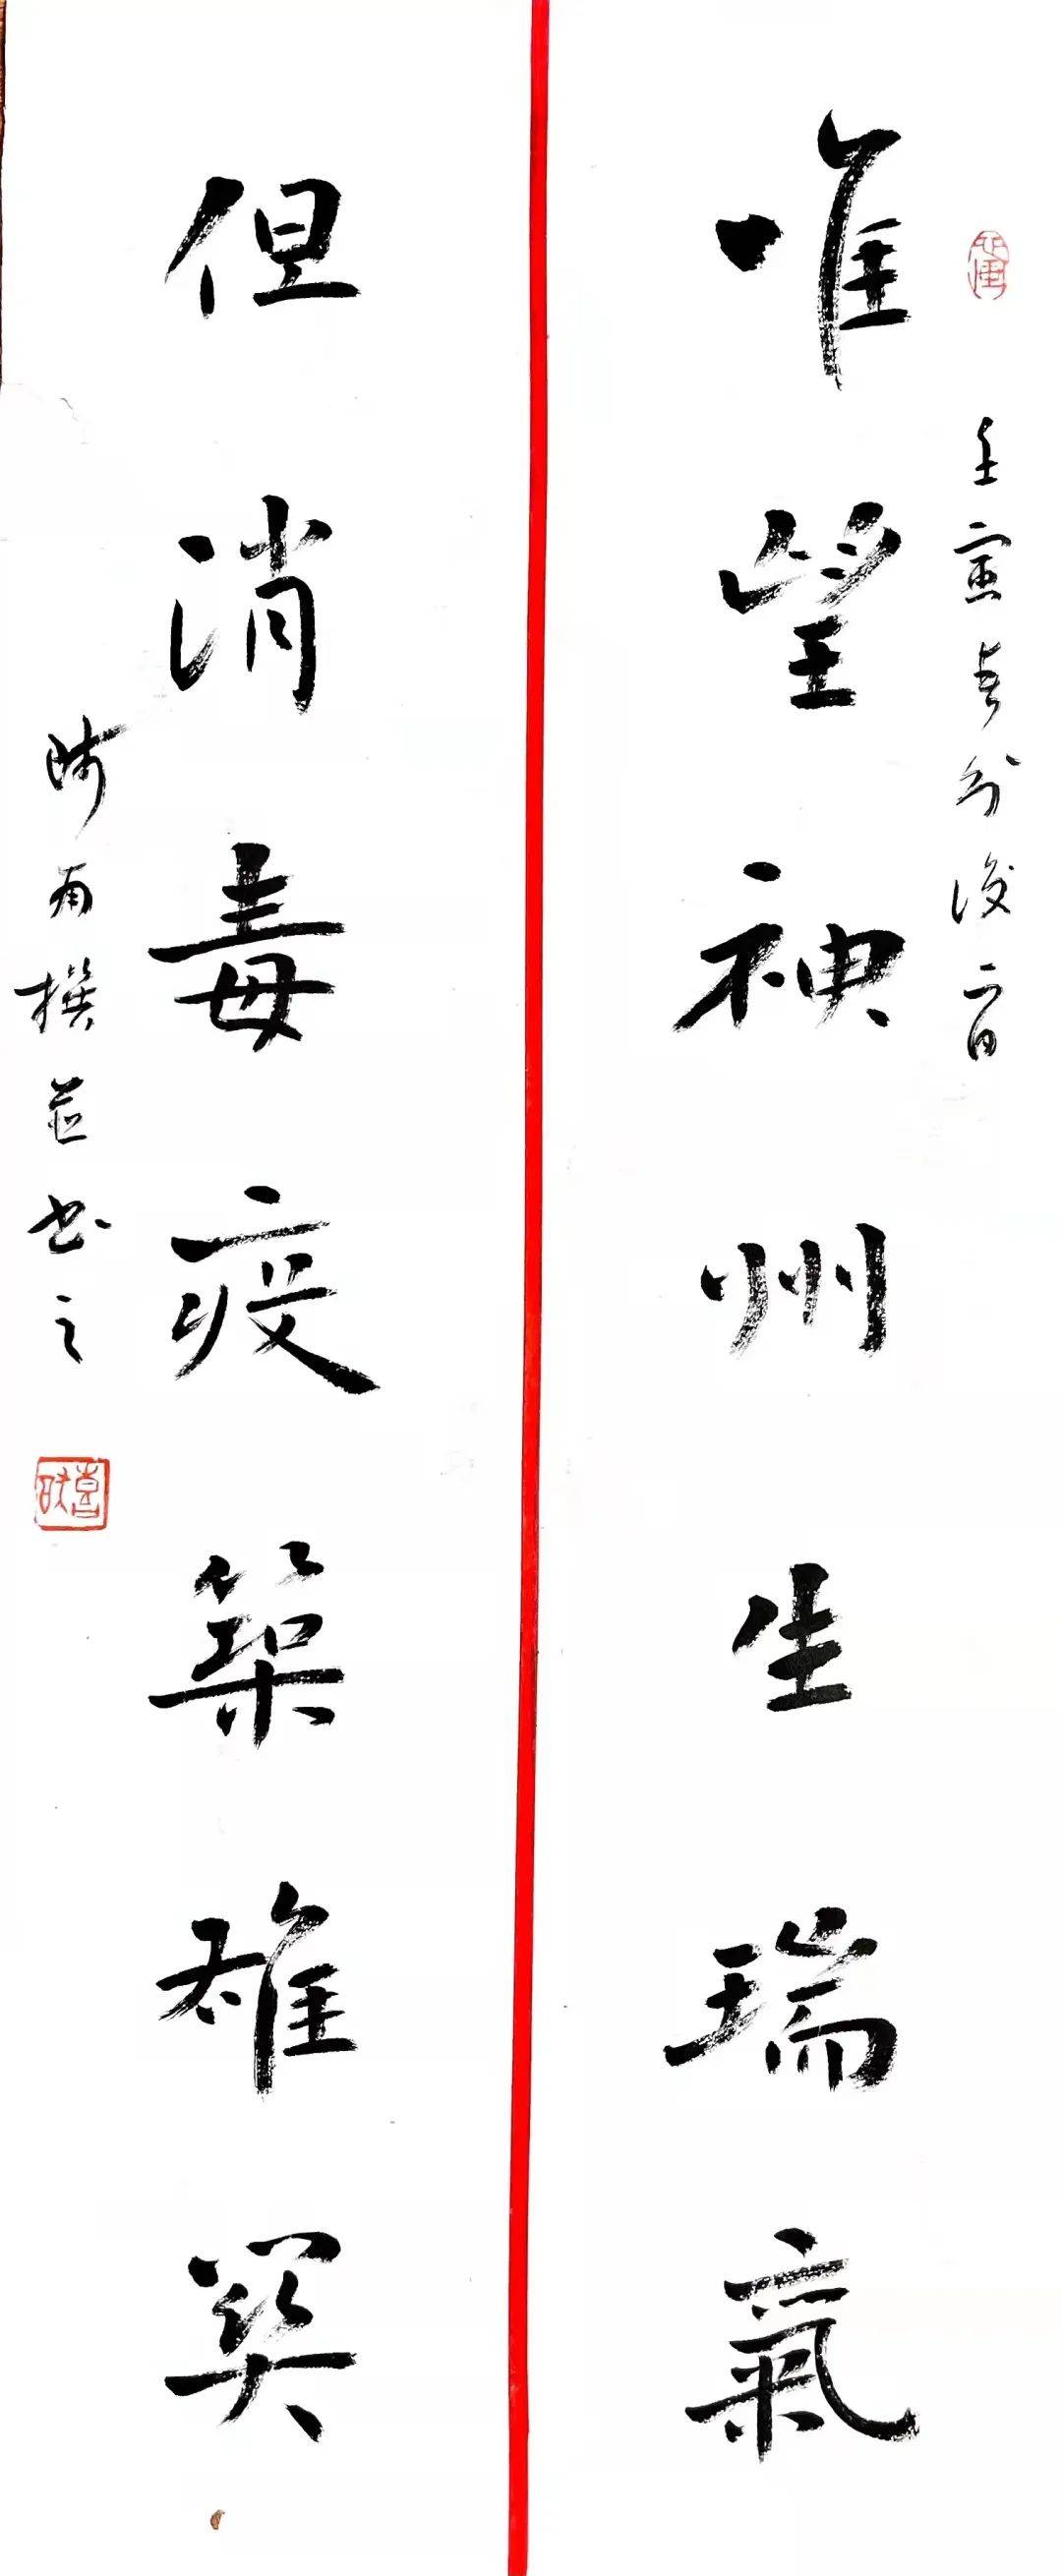 唯望神州生瑞氣
壬寅春分後二日
但消毒疫築雄關
雨撰並书之